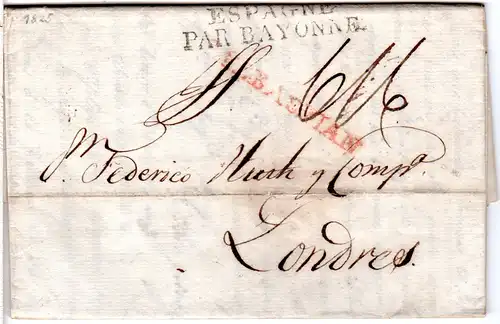 1825
ESPAGNE
PAR BAYONNE
S. SEBASTIAN
Sr. Federico Huth y Compa.
Londres.